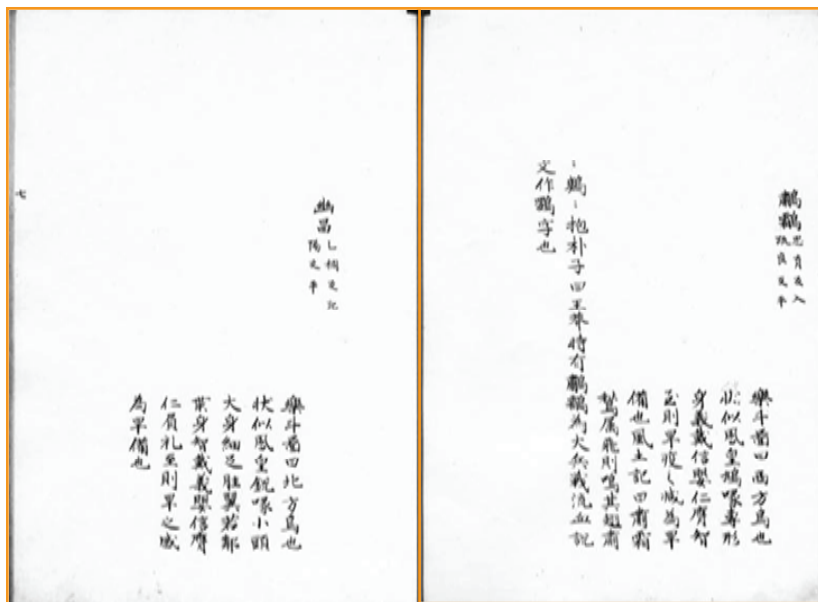 鷫鸘
思育反入
良反平
樂斗啚曰西方鳥也
状似鳳皇鳩喙專形
身義戴信嬰仁膺智
至則旱疫之感為旱
備也風土記曰肅霜
鵞属飛則鳴其翅肅
〻鸘〻抱朴子曰王莽時有鷫鸘為大兵戦流血説
文作鷞字也
幽昌
乙樛反
陽反平
樂斗啚曰北方鳥也
状似鳳皇鋭喙小頭
大身細足脛翼若鄰
葉身智戴義嬰信膺
仁負礼至則旱之感
為旱備也
七